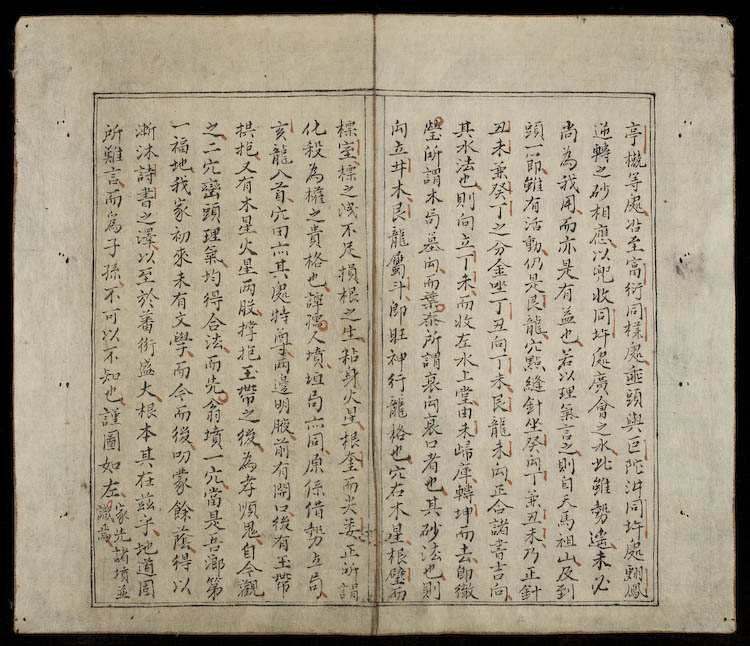 亭檄等處岧至富衍同樣處垂頭與巨陀汫同圩處翅鳳
逆轉之砂相應以兜收同圩處廣會之水此雖勢遙未必
尚為我用而亦是有益也若以理氣言之則自天馬祖山及到
頭一節雖有活動仍是艮龍穴點縫針坐癸向丁兼丑未乃正針
丑未兼癸丁之分金坐丁丑向丁未艮龍未向正合諸書吉向
其水法也則向立丁未而收左水上堂由未歸庫轉坤而去即徹
瑩所謂木局墓向而葉泰所謂衰向衰口者也其砂法也則
向立井木艮龍屬斗即旺神行龍格也穴右木星根璧而
標室標之洩不足損根之生粘身火星根奎而尖姜正所謂
化殺為權之貴格也譚孺人墳垣局亦同原係借勢立局
亥龍入首穴田亦其處特尊兩邊明肢前有開口後有玉帶
拱抱又有木星火星两股撑抱玉帶之後為孝順鬼自今觀
之二穴巒頭理氣均得合法而先翁墳一穴當是吾鄉第
一福地我家初來未有文學而今而後叨蒙餘蔭得以
漸沐詩書之澤以至於蕃衍盛大根本其在玆乎地道固
所難言而為子孫不可以不知也謹圖如左家先諸墳並
識焉